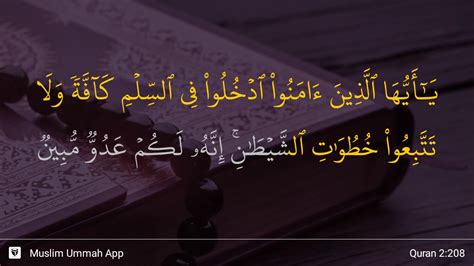 يَـٰٓأَيُّهَا ٱلَّذِينَ ءَامَنُوا۟ ٱدْخُلُوا۟ فِى ٱلسِّلْمِ كَآفَّةً وَلَا
تَتَّبِعُوا۟ خُطُوَٰتِ ٱلشَّيْطَـٰنِ ۚ إِنَّهُۥ لَكُمْ عَدُوٌّ مُّبِينٌ
Muslim Ummah App
Quran 2:208